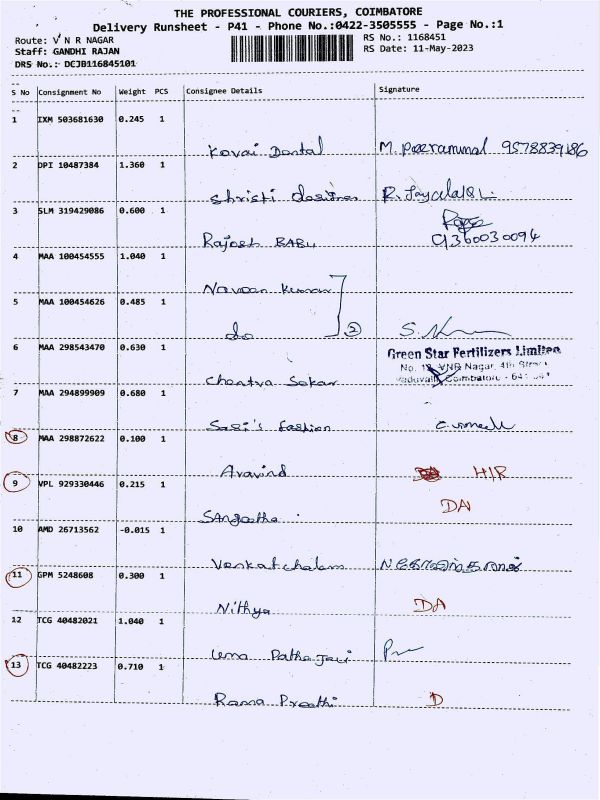 THE PROFESSIONAL COURIERS, COIMBATORE
Delivery Runsheet - P41 - Phone No.:0422-3505555 - Page No.:1
Route: V N R NAGAR
RS No.: 1168451
Staff: GANDHI RAJAN
RS Date: 11-May-2023
DRS No.: DCJB116845101
S No Consignment No Weight PCS Consignee Details Signature
1 IXM 503681630 0.245 1
Kovai Dental M. Peerammal 9578839186
2 DPI 10487384 1.360 1
Shristi R.
3 SLM 319429086 0.600 1
Rajesh BABU 9360030094
4 MAA 100454555 1.040 1
Naveen Kumar
5 MAA 100454626 0.485 1
do 2 S.
6 MAA 298543470 0.630 1
Green Star Fertilizers Limited
VNR Nagar, 4th Street
Coimbatore - 641 041
Sekar
7 MAA 294899909 0.680 1
Sasi's Fashion
8 MAA 298872622 0.100 1
Aravind H/R
9 VPL 929330446 0.215 1
Sangeetha DA
10 AMD 26713562 -0.015 1
Venkatchalam
11 GPM 5248608 0.300 1
Nithya DA
12 TCG 40482021 1.040 1
Uma
13 TCG 40482223 0.710 1
Rama Preethi D